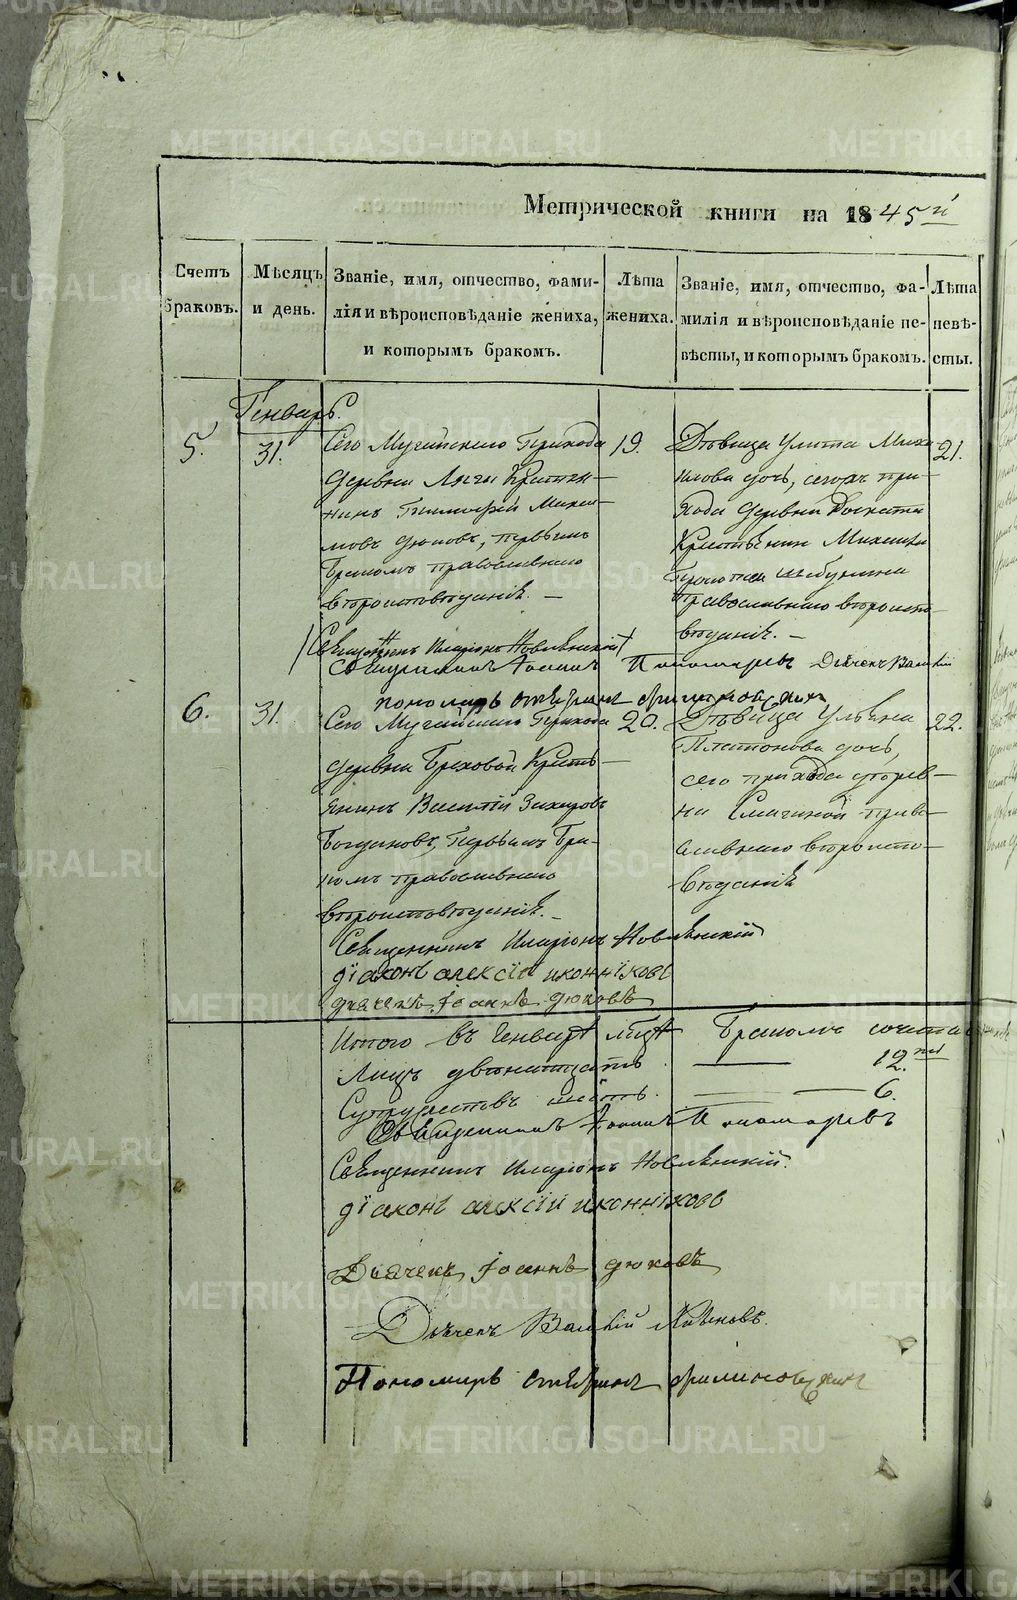 METRIKI.GASO-URAL.RU
Метрической книги на 1845й
Счетъ браковъ.
Мѣсяцъ и день.
Званіе, имя, отчество, фами-
лія и вѣроисповѣданіе жениха,
и которымъ бракомъ.
Лѣта
жениха.
Званіе, имя, отчество, фа-
милія и вѣроисповѣданіе не-
вѣсты, и которымъ бракомъ.
Лѣта
невѣ-
сты.
Генварь.
5.
31.
Сего Мугайскаго Прихода
деревни Крестья-
нинъ Тимофей
Дюковъ, первымъ
бракомъ православнаго
вѣроисповѣданія. —
19.
Дѣвица Улита Миха
илова дочь, сегожъ при-
хода деревни
Крестьянина Михаила
православнаго вѣроиспо-
вѣданія. —
21.
Священникъ Иларіонъ
Священникъ Іоаннъ Пономаревъ Дьячекъ
пономарь
6.
31.
Сего Мугайскаго Прихода
деревни Бреховой Кресть-
янинъ Василій Захаровъ
Богдановъ, Первымъ бра-
комъ православнаго
вѣроисповѣданія. —
20.
Дѣвица Ульяна
Платонова дочь,
сего прихода дерев-
ни Смагиной право-
славнаго вѣроиспо-
вѣданія
22.
Священникъ Иларіонъ
діаконъ алексій иконніковъ
дьячекъ Іоаннъ дюковъ
Итого въ Генварѣ м-цѣ бракомъ
Лицъ двѣнатцать — 12.
Супружествъ шесть. — 6.
Священникъ Іоаннъ Пономаревъ
Священникъ Иларіонъ
діаконъ алексій иконніковъ
Дьячекъ Іоаннъ дюковъ
Дьячекъ
Пономарь